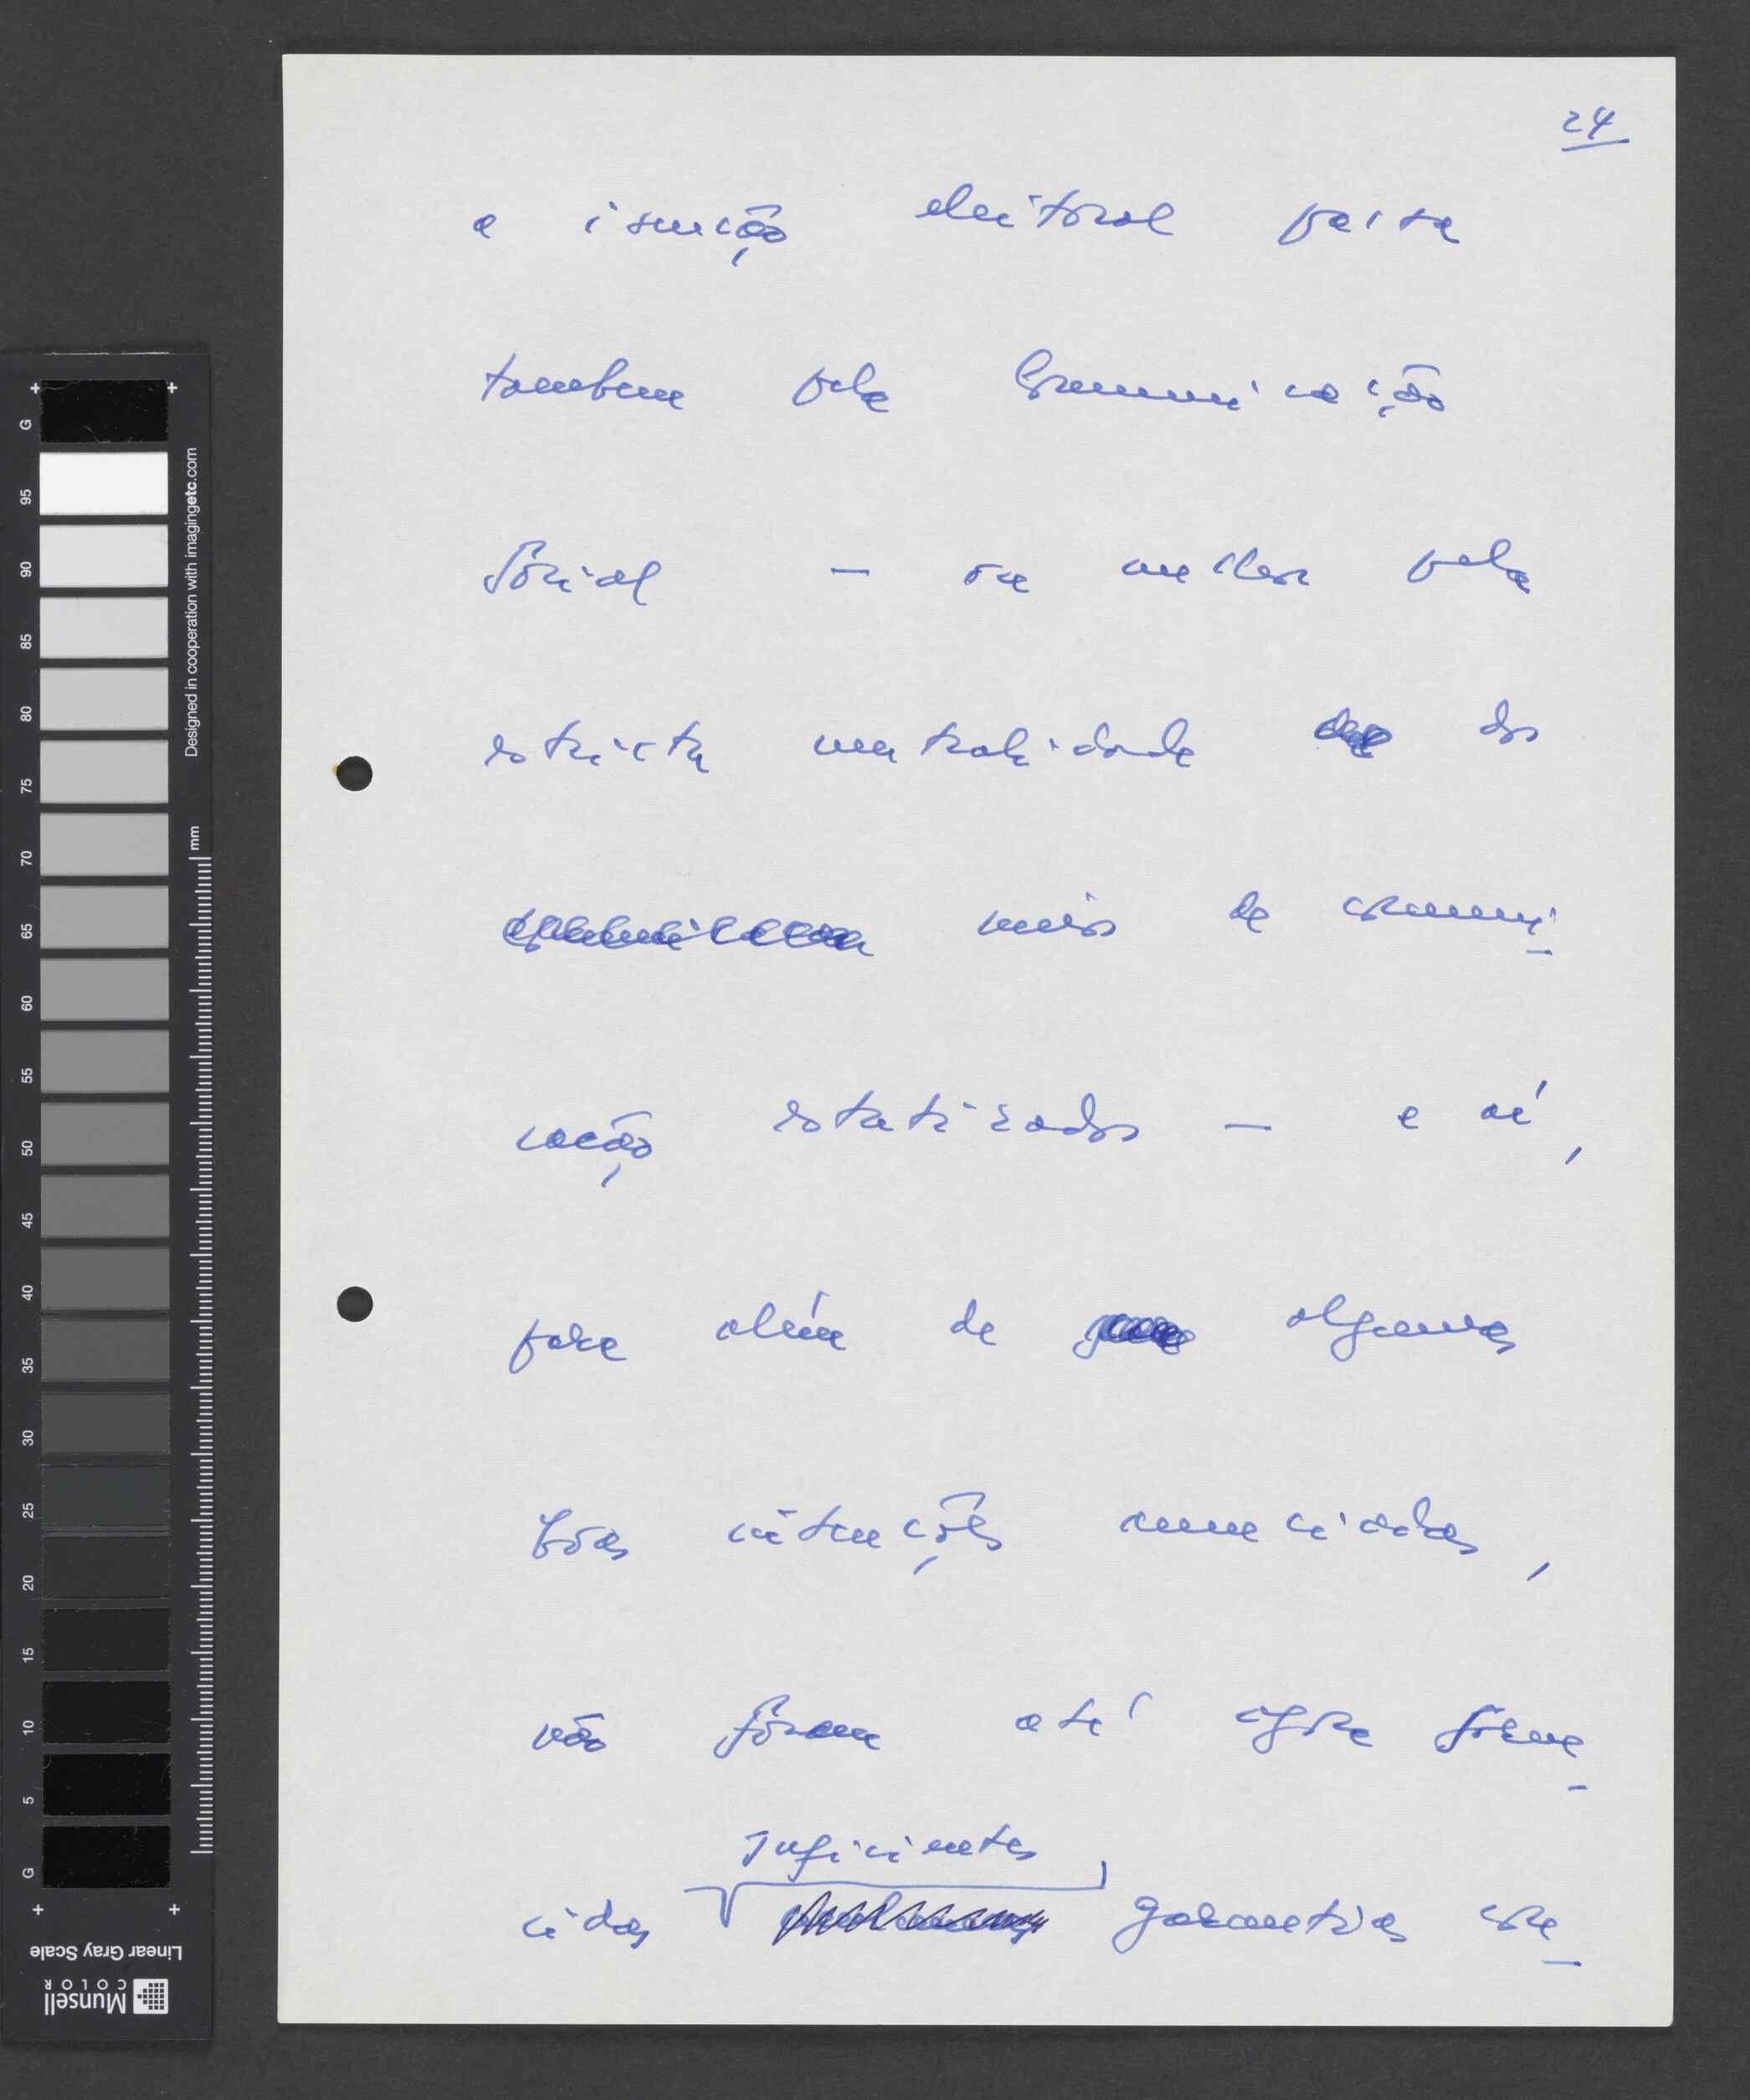 24
a isenção eleitoral passa
também pela Comunicação
Social – ou melhor pela
estricta neutralidade dos
meios de comuni-
cação estatizados – e aí,
para além de algumas
boas intenções anunciadas,
não foram até agora forne-
suficientes
cidas garantias con-
G
95
90
85
80
75
70
65
60
55
50
45
40
35
30
25
20
15
10
5
G
Designed in cooperation with imagingetc.com
mm
Linear Gray Scale
Munsell
COLOR